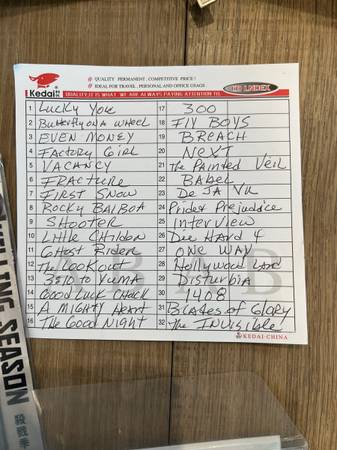 # QUALITY PERMANENT, COMPETITIVE PRICE!
# IDEAL FOR TRAVEL, PERSONAL AND OFFICE USAGE
Kedai
QUALITY, IT IS WHAT WE ARE ALWAYS PAYING ATTENTION TO.
INDEX
1 LUCKY YOU
2 Butterfly on a wheel
3 EVEN MONEY
4 FACTORY GIRL
5 VACANCY
6 FRACTURE
7 FIRST SNOW
8 ROCKY BALBOA
9 SHOOTER
10 Little Children
11 GHost RIDER
12 The LOOKOUT
13 3:10 to YUMA
14 GOOD LUCK CHUCK
15 A MIGHTY HEART
16 The GOOD NIGHT
17 300
18 FLY BOYS
19 BREACH
20 NEXT
21 The Painted Veil
22 BABEL
23 DE JA VU
24 Pride & Prejudice
25 Interview
26 Die HARD 4
27 ONE WAY
28 Hollywood Land
29 DISTURBIA
30 1408
31 BLADES OF GLORY
32 The INVISIBLE
KEDAI-CHINA
KILLING SEASON